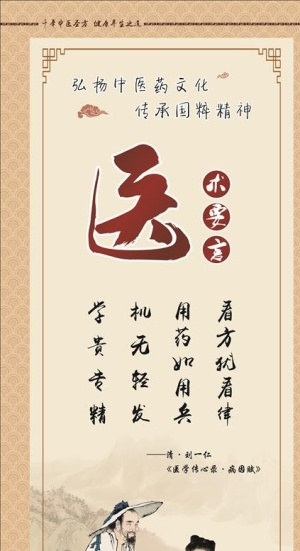 千年中医圣方 健康养生之道
弘扬中医药文化
传承国粹精神
医
术要言
看方犹看律
用药如用兵
机无轻发
学贵专精
——清·刘一仁
《医学传心录·病因赋》